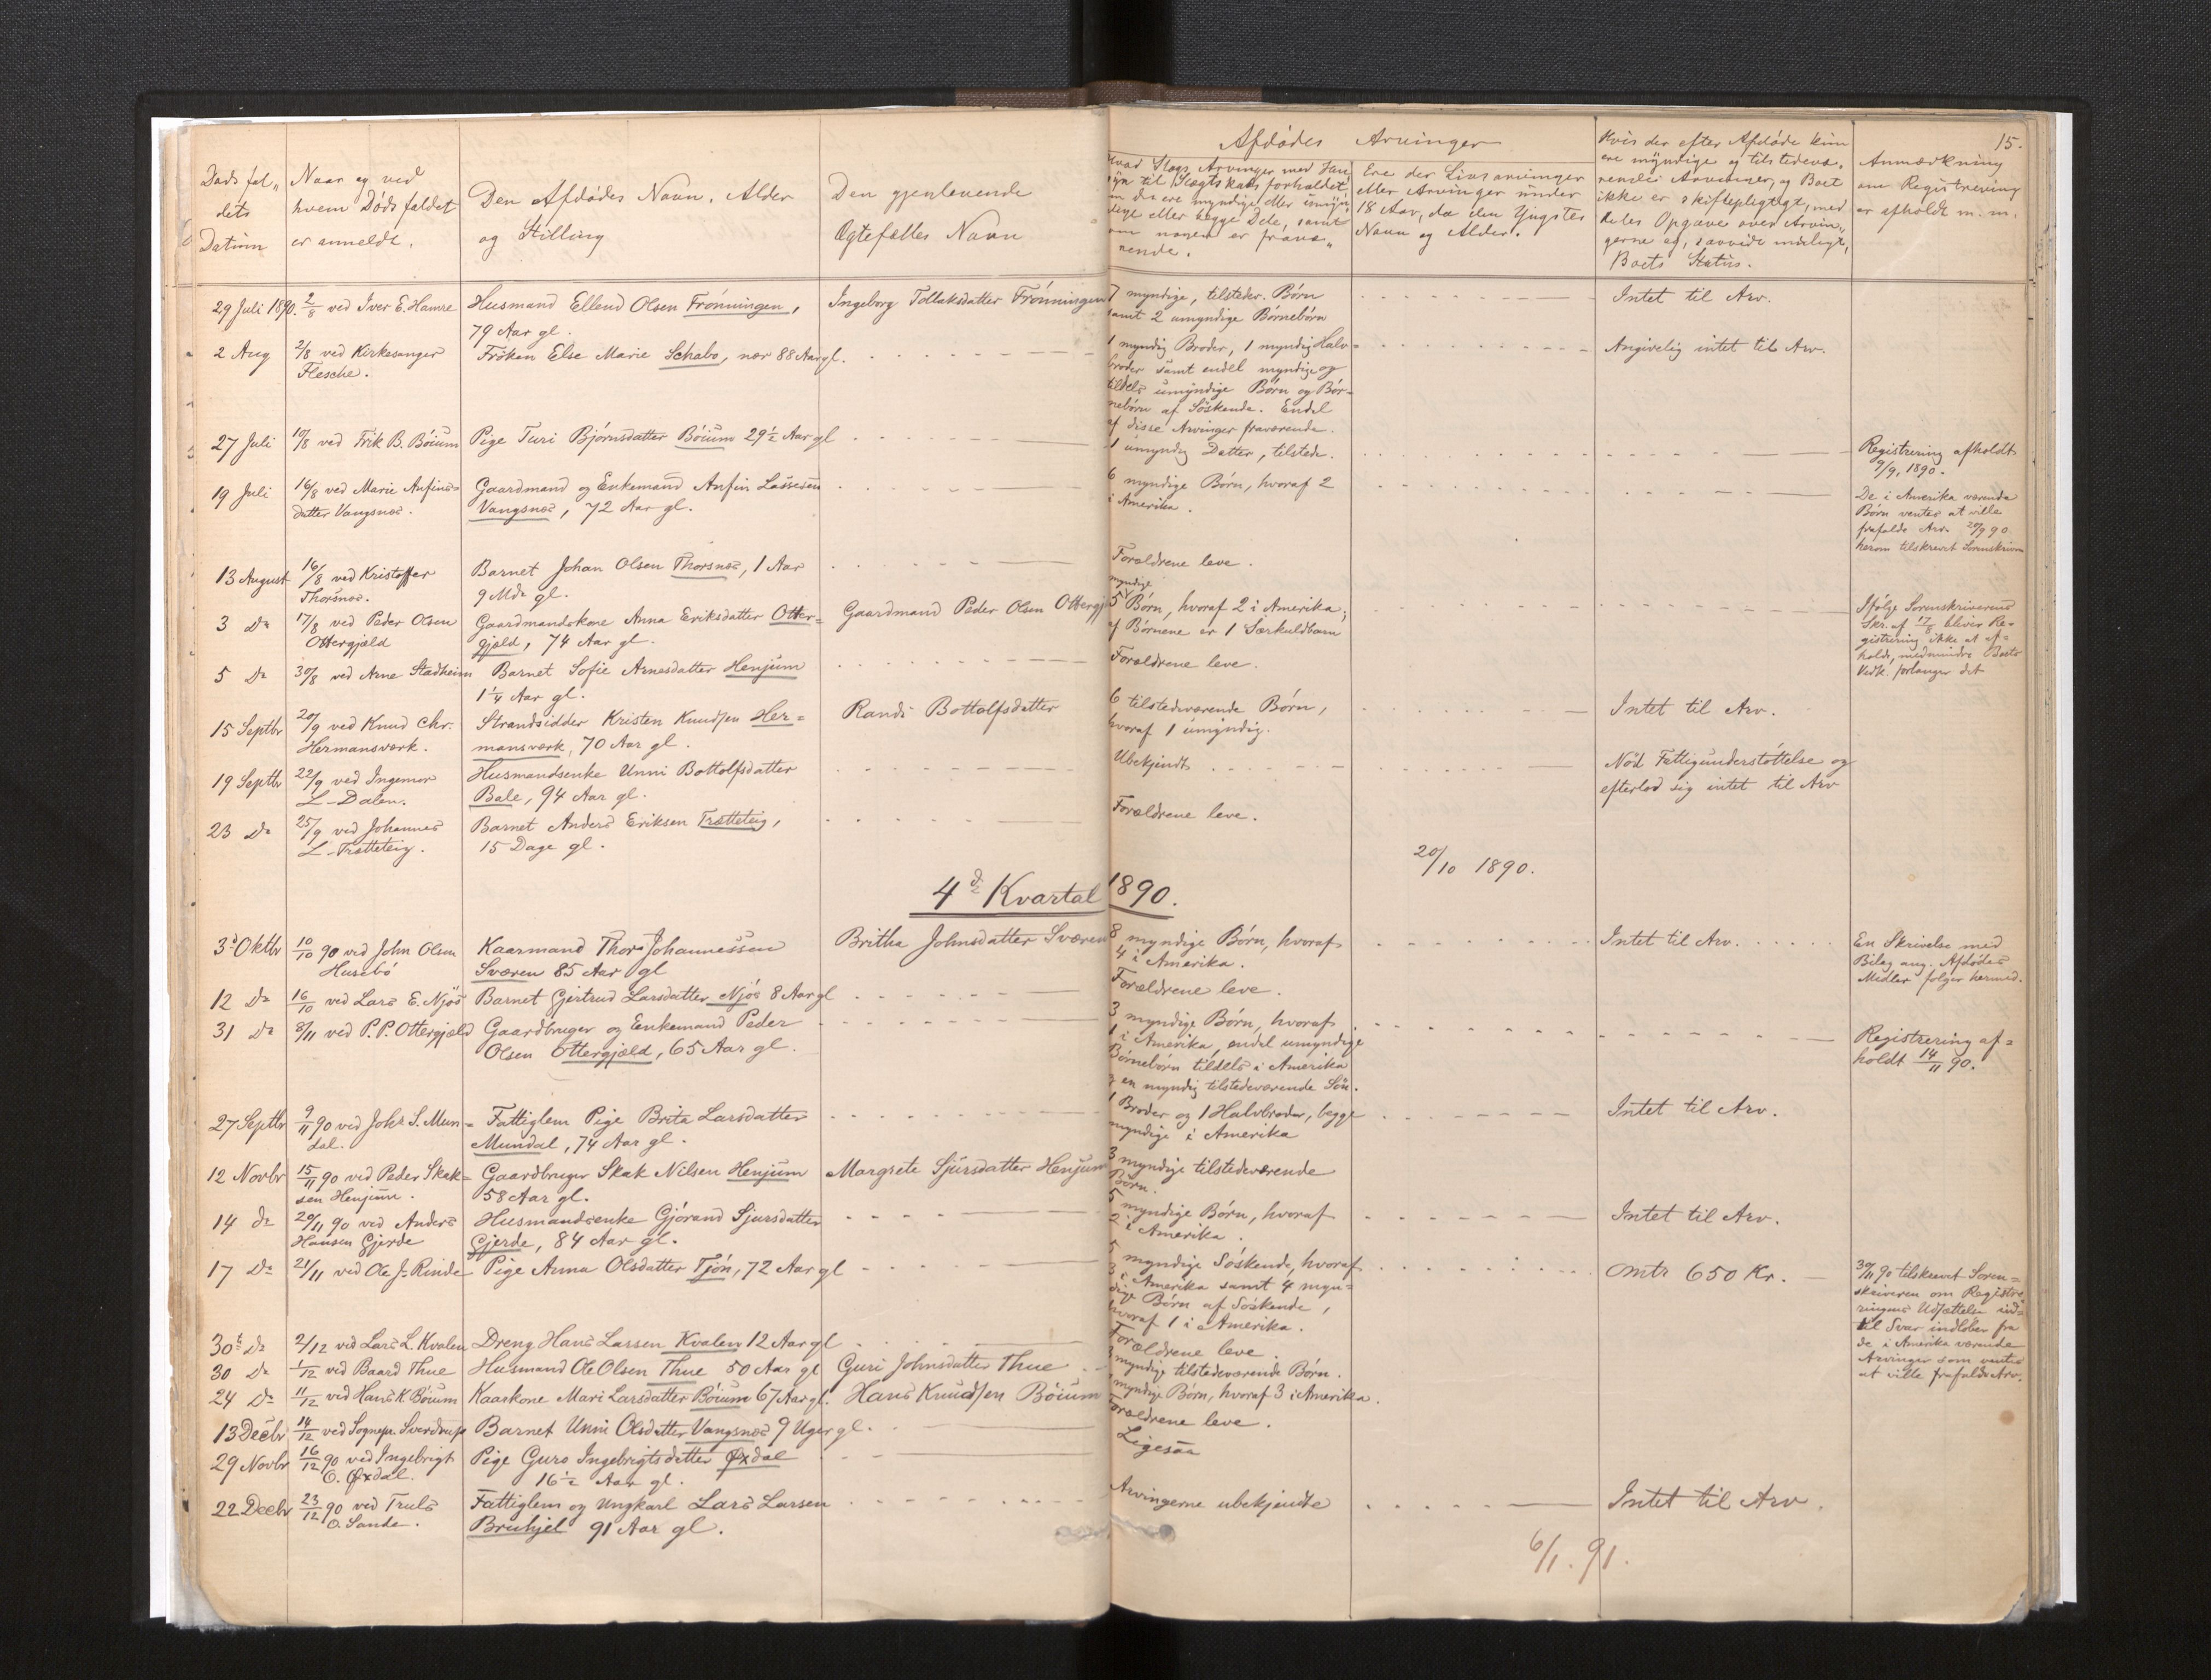 15.
Afdødes Arvinger
Dødsfal„
dets
Datum
Naar og ved
hvem Dødsfaldet
er anmeldt.
Den Afdødes Navn, Alder
og Stilling
Den gjenlevende
Ægtefælles Navn
Hvad Slags Arvinger med Hen„
syn til Slægtskabsforholdet,
om de ere myndige eller umyn„
dige eller begge Dele, samt
om nogen er fravæ„
rende.
Ere der Livsarvinger
eller Arvinger under
18 Aar, da den Yngstes
Navn og Alder.
Hvis der efter Afdøde kun
ere myndige og tilstedevæ„
rende Arvinger, og Boet
ikke er skiftepligtigt, med„
deles Opgave over Arvin„
gerne og, saavidt muligt,
Boets Status.
Anmærkning
om Registrering
er afholdt m. m.
29 Juli 1890. 2/8 ved Iver E. Hamre Husmand Ellend Olsen Frönningen, Ingeborg Tollaksdatter Frönningen 7 myndige, tilstedev. Börn Intet til Arv.
79 Aar gl. samt 2 umyndige Börnebörn
2 Aug 2/8 ved Kirkesanger Fröken Else Marie Schabo, nær 88 Aar gl. 1 myndig Broder, 1 myndig Halv= Angivelig intet til Arv.
Flesche. broder samt endel myndige og
tildels umyndige Börn og Bör=
nebörn af Söskende. Endel
af disse Arvinger fraværende.
27 Juli 10/8 ved Erik B. Böium Pige Turi Bjørnsdatter Böium 29 1/2 Aar gl 1 umyndig Datter, tilstede. Registrering afholdt
9/9. 1890.
19 Juli 16/8 ved Marie Anfins= Gaardmand og Enkemand Anfin Lassesen 6 myndige Börn, hvoraf 2 De i Amerika værende
datter Vangsnes. Vangsnes, 72 Aar gl. i Amerika. Börn ventes at ville
frafalde Arv. 20/9 90
herom tilskrevet Sorenskriveren
13 August 16/8 ved Kristoffer Barnet Johan Olsen Thorsnes, 1 Aar Forældrene leve.
Thorsnes. 9 Mdr gl.
myndige
3 Do 17/8 ved Peder Olsen Gaardmandskone Anna Eriksdatter Otter= Gaardmand Peder Olsen Ottergj 5 Börn, hvoraf 2 i Amerika; Ifölge Sorenskriverens
Ottergjeld gjeld, 74 Aar gl. af Börnene er 1 Særkuldbarn Skr. af 17/8 bliver Re=
gistrering ikke at af=
holde, medmindre Boets
Vedk. forlanger det
5 Do 30/8 ved Arne Stadheim Barnet Sofie Arnesdatter Henjum Forældrene leve.
1 1/4 Aar gl.
15 Septbr 20/9 ved Knud Chr. Strandsidder Kristen Knudsen Her= Randi Bottolfsdatter 6 tilstedeværende Börn, Intet til Arv.
Hermansverk. mansverk, 70 Aar gl. hvoraf 1 umyndig.
19 Septbr 22/9 ved Ingemor Husmandsenke Unni Bottolfsdatter Ubekjendt Nöd Fattigunderstöttelse og
L. Dalen. Bale, 94 Aar gl. efterlod sig intet til Arv
23 Do 25/9 ved Johannes Barnet Anders Eriksen Trætteteig, Forældrene leve.
L. Trætteteig. 15 Dage gl.
20/10 1890.
4de Kvartal 1890.
3die Oktbr 10/10 90 ved John Olsen Kaarmand Thor Johannessen Britha Johnsdatter Sværen 8 myndige Börn, hvoraf Intet til Arv. En Skrivelse med
Husebö Sværen 85 Aar gl 4 i Amerika. Bilag ang. Afdödes
Midler fölger hermed.
12 Do 16/10 ved Lars E. Njös Barnet Gjertrud Larsdatter Njös 8 Aar gl Forældrene leve.
31 Do 8/11 ved P. P. Ottergjeld Gaardbruger og Enkemand Peder 3 myndige Börn, hvoraf Registrering af=
Olsen Ottergjeld, 65 Aar gl. 1 i Amerika, endel umyndige holdt 14/11 90.
Börnebörn tildels i Amerika
og en myndig tilstedeværende Sön.
27 Septbr 9/11 90 ved Johs S. Mun= Fattiglem Pige Brita Larsdatter 1 Broder og 1 Halvbroder, begge Intet til Arv.
dal. Mundal, 74 Aar gl. myndige i Amerika
12 Novbr 15/11 90 ved Peder Skak= Gaardbruger Skak Nilsen Henjum Margrete Sjursdatter Henjum 3 myndige tilstedeværende
sen Henjum. 58 Aar gl. Börn.
14 do 20/11 90 ved Anders Husmandsenke Gjörand Sjursdatter 5 myndige Börn, hvoraf Intet til Arv.
Hansen Gjerde Gjerde, 84 Aar gl. 2 i Amerika.
17 Do 21/11 ved Ole J. Rinde Pige Anna Olsdatter Tjön, 72 Aar gl 5 myndige Söskende, hvoraf omtr 650 Kr. 30/11 90 tilskrevet Soren=
3 i Amerika samt 4 myn= skriveren om Registre
dige Börn af Söskende, ringens Udsættelse ind=
hvoraf 1 i Amerika. til Svar indlöber fra
de i Amerika værende
Arvinger som ventes
at ville frafalde Arv.
30te Do 2/12 ved Lars L. Kvalen Dreng Hans Larsen Kvalen 12 Aar gl Forældrene leve.
30 Do 1/12 ved Baard Thue Husmand Ole Olsen Thue 50 Aar gl Guri Johnsdatter Thue myndige tilstedeværende Börn.
24 Do 11/12 ved Hans K. Böium Kaarkone Mari Larsdatter Böium 67 Aar gl. Hans Knudsen Böium myndige Börn, hvoraf 3 i Amerika.
13 Decbr 14/12 ved Sognepr. Sverdrup Barnet Unni Olsdatter Vangsnes 9 Uger gl. Forældrene leve.
29 Novbr 16/12 90 ved Ingebrigt Pige Guro Ingebrigtsdatter Øxdal Ligesaa
O. Øxdal. 16 1/2 Aar gl.
22 Decbr 23/12 90 ved Truls Fattiglem og Ungkarl Lars Larsen Arvingerne ubekjendte Intet til Arv.
O. Sande. Bruhjel 91 Aar gl.
6/1. 91.